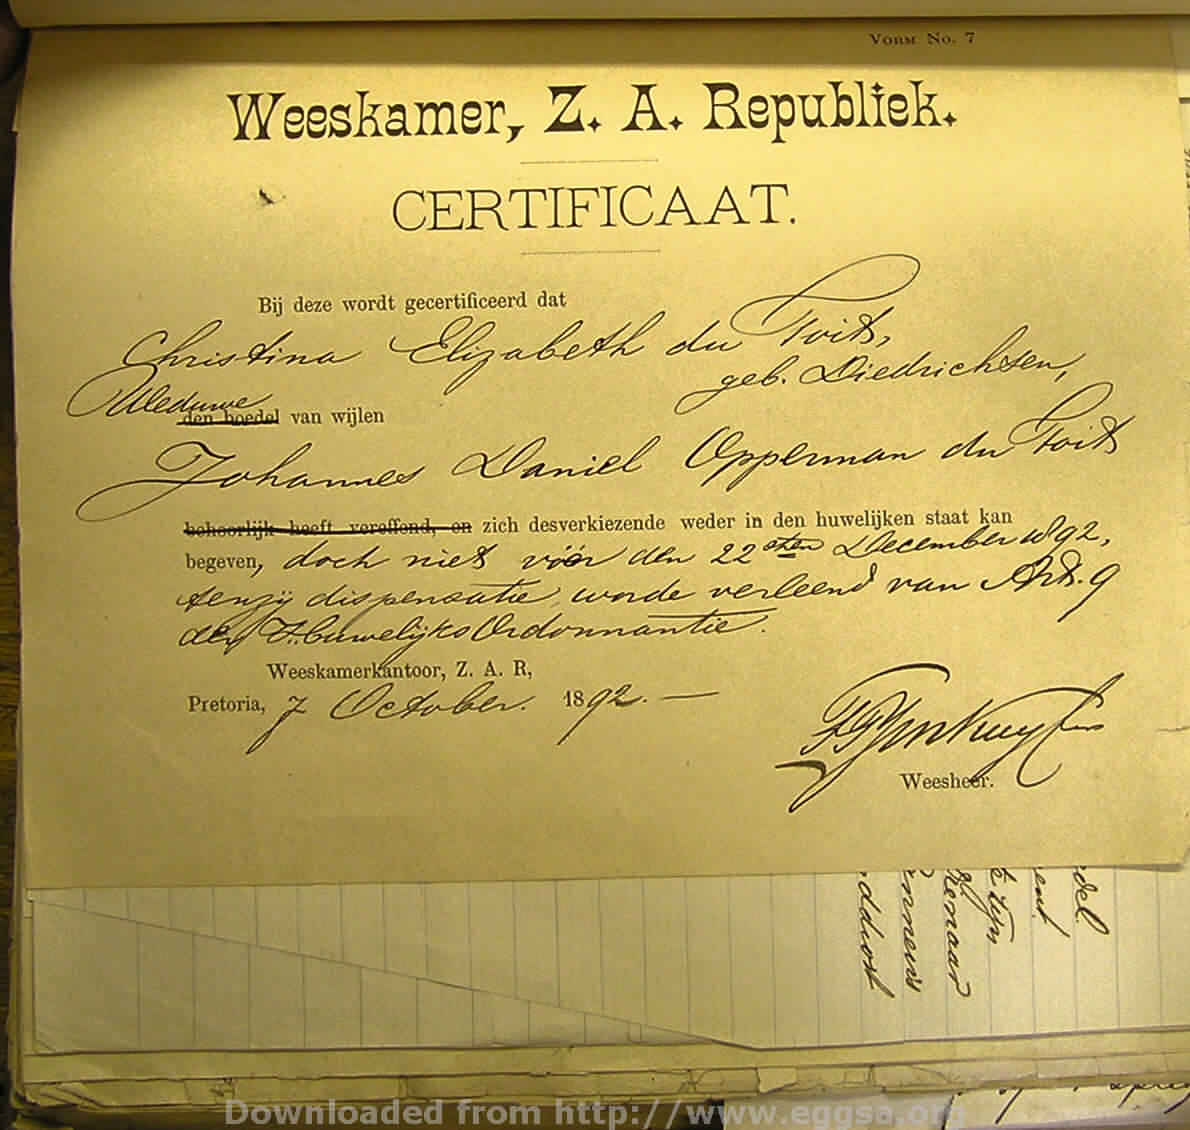 Vorm No. 7
Weeskamer, Z. A. Republiek.
CERTIFICAAT.
Bij deze wordt gecertificeerd dat
Christina Elizabeth du Toit,
geb. Diedrichsen,
Weduwe
den boedel van wijlen
Johannes Daniel Opperman du Toit
behoorlijk heeft vereffend, en zich desverkiezende weder in den huwelijken staat kan
begeven, doch niet vóór den 22sten December 1892,
tenzij dispensatie worde verleend van Art. 9
der Huwelijks Ordonnantie.
Weeskamerkantoor, Z. A. R,
Pretoria, 7 October. 1892. —
Weesheer.
Downloaded from http://www.eggsa.org